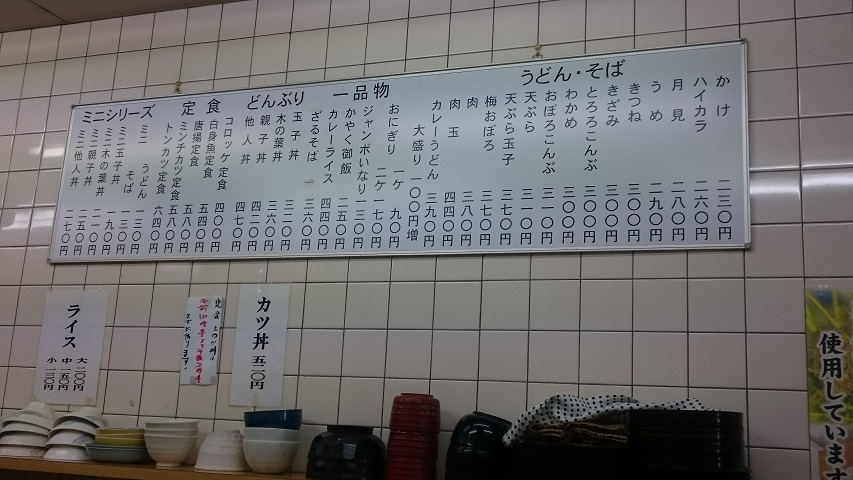 うどん・そば
かけ 二三〇円
ハイカラ 二六〇円
月見 二八〇円
うめ 二九〇円
きつね 三〇〇円
きざみ 三〇〇円
とろろこんぶ 三〇〇円
わかめ 三〇〇円
おぼろこんぶ 三一〇円
天ぷら 三一〇円
天ぷら玉子 三七〇円
梅おぼろ 三七〇円
肉 三八〇円
肉玉 四四〇円
カレーうどん 三九〇円
大盛り 一〇〇円増
一品物
おにぎり 一ケ 九〇円
二ケ 一七〇円
ジャンボいなり 一三〇円
かやく御飯 二五〇円
カレーライス 四四〇円
ざるそば 三六〇円
どんぶり
玉子丼 三二〇円
木の葉丼 三六〇円
親子丼 四二〇円
他人丼 四七〇円
定食
コロッケ定食 四〇〇円
白身魚定食 五四〇円
唐揚定食 五八〇円
ミンチカツ定食 五八〇円
トンカツ定食 六四〇円
ミニシリーズ
ミニ うどん 一三〇円
ミニ そば 一三〇円
ミニ玉子丼 一九〇円
ミニ木の葉丼 二一〇円
ミニ親子丼 二五〇円
ミニ他人丼 二七〇円
カツ丼 五二〇円
ライス
大 二〇〇円
中 一五〇円
小 一三〇円
使用しています